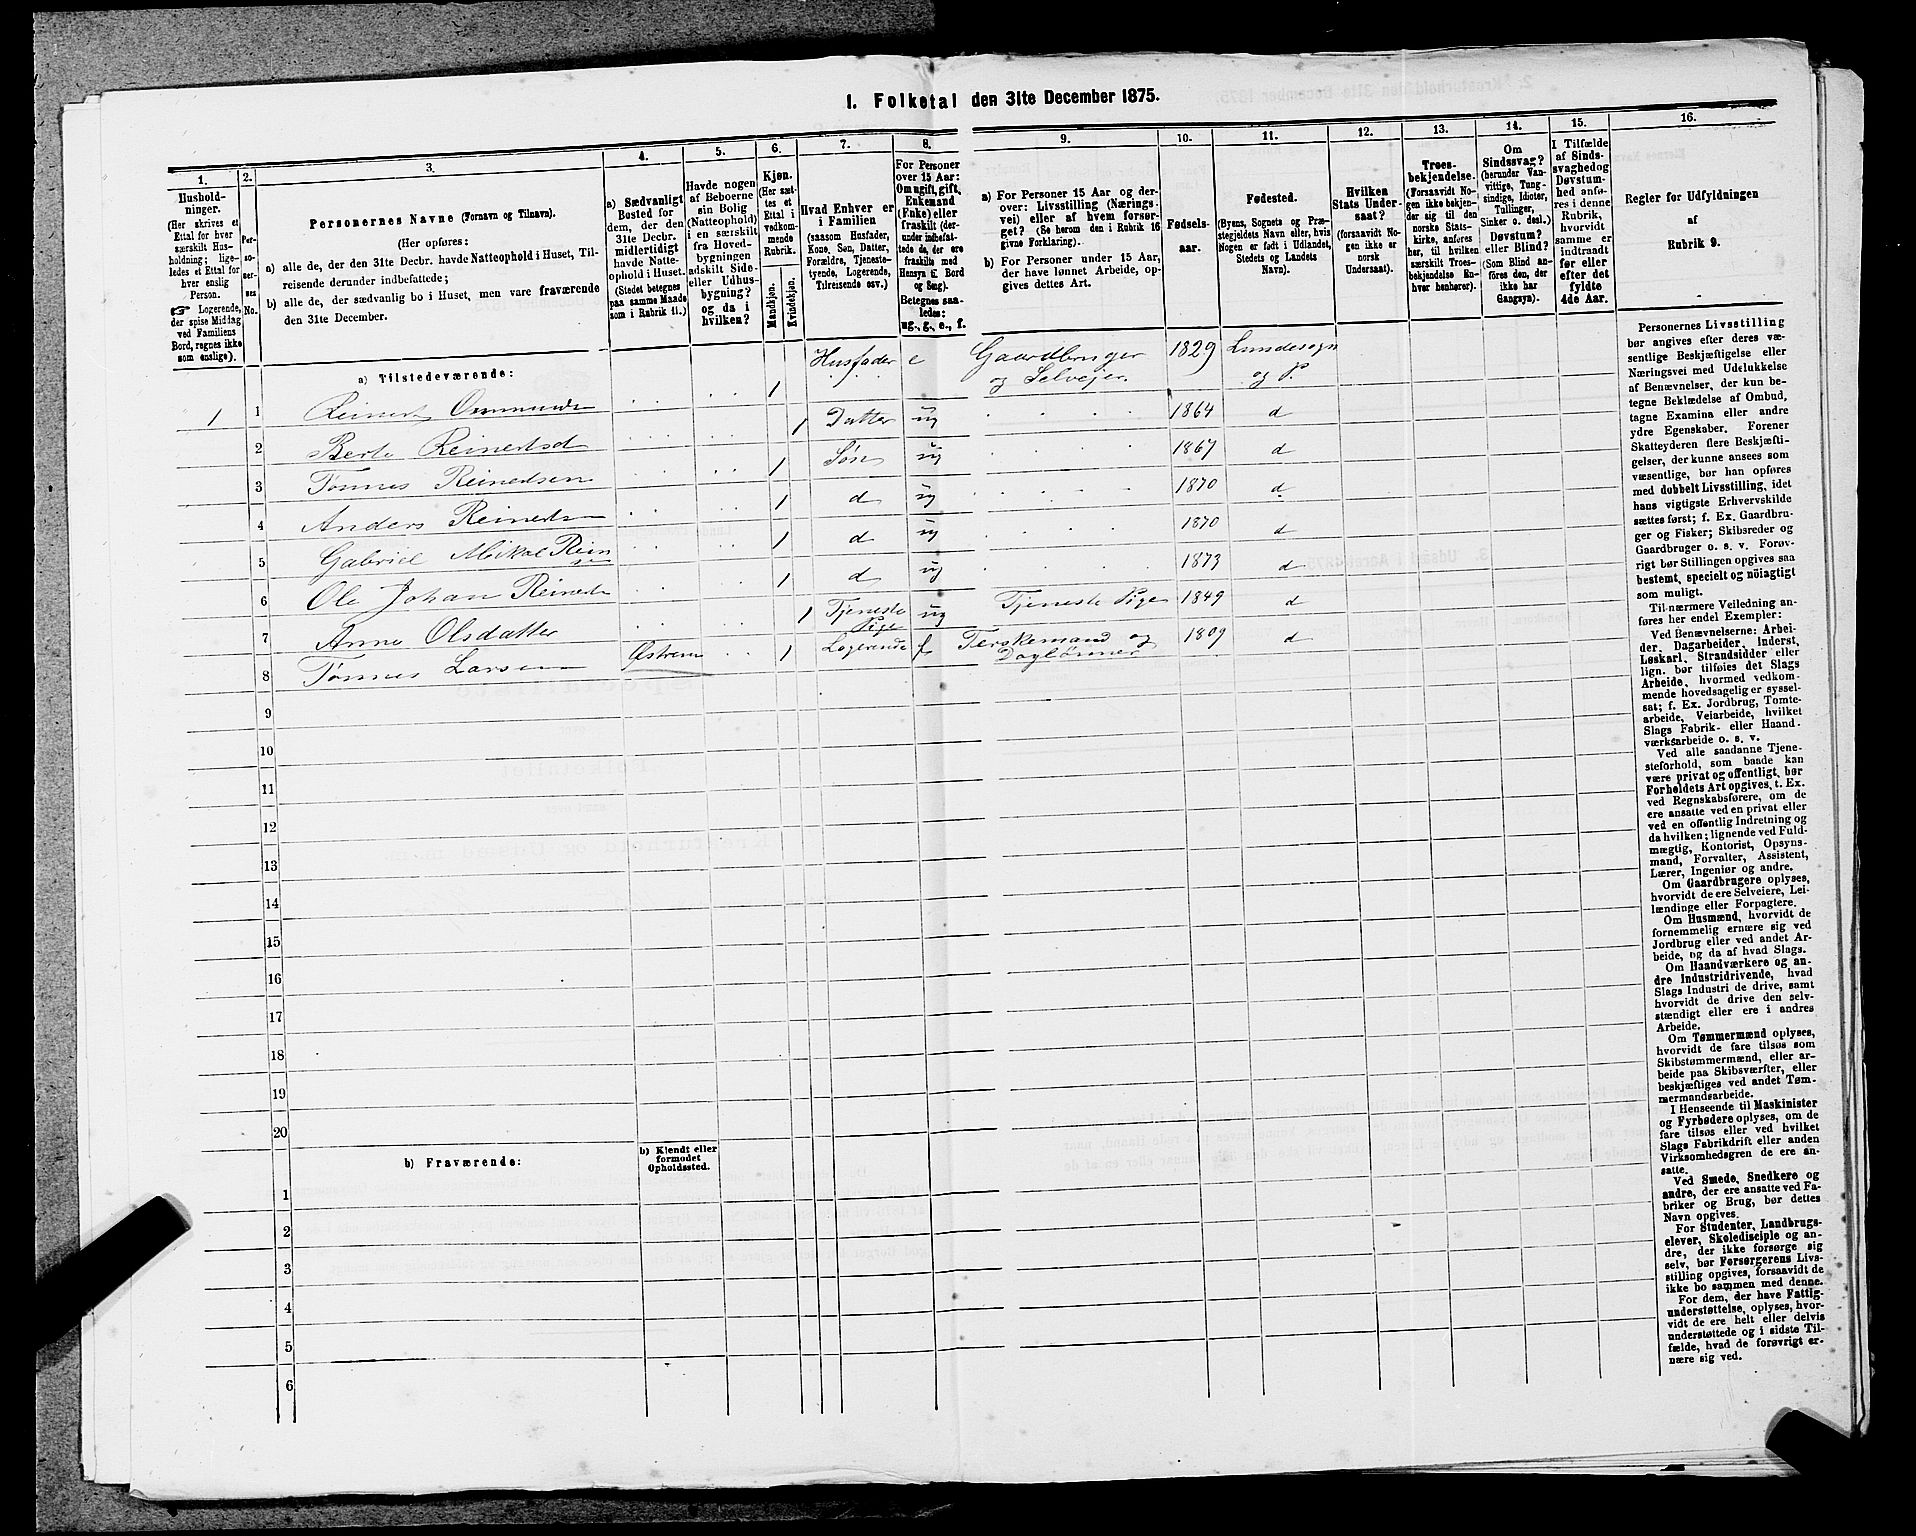 1. Folketal den 31te December 1875.
1.
Hushold-
ninger.
(Her skrives et
Ettal for hver
særskilt Hus-
holdning; lige-
ledes et Ettal for
hver enslig
Person.
☞ Logerende,
der spise Middag
ved Familiens
Bord, regnes ikke
som enslige).
2.
Per-
so-
ner-
nes
No.
3.
Personernes Navne (Fornavn og Tilnavn).
(Her opføres:
a) alle de, der den 31te Decbr. havde Natteophold i Huset, Til-
reisende derunder indbefattede;
b) alle de, der sædvanlig bo i Huset, men vare fraværende
den 31te December.
4.
a) Sædvanligt
Bosted for
dem, der den
31te Decbr.
midlertidigt
havde Natte-
ophold i Huset.
(Stedet betegnes
paa samme Maade
som i Rubrik 11.)
5.
Havde nogen
af Beboerne
sin Bolig
(Natteophold)
i en særskilt
fra Hoved-
bygningen
adskilt Side-
eller Udhus-
bygning?
og da i
hvilken?
6.
Kjøn.
(Her sæt-
tes et
Ettal i
vedkom-
mende
Rubrik.
Mandkjøn.
Kvindekjøn.
7.
Hvad Enhver er
i Familien
(saasom Husfader,
Kone, Søn, Datter,
Forældre, Tjeneste-
tyende, Logerende,
Tilreisende osv.)
8.
For Personer
over 15 Aar:
Om ugift, gift,
Enkemand
(Enke) eller
fraskilt (der-
under indbefat-
tede de, der ere
fraskilte med
Hensyn til Bord
og Seng).
Betegnes saa-
ledes:
ug., g., e., f.
9.
a) For Personer 15 Aar og der-
over: Livsstilling (Nærings-
vei) eller af hvem forsør-
get? (Se herom den i Rubrik 16
givne Forklaring).
b) For Personer under 15 Aar,
der have lønnet Arbeide, op-
gives dettes Art.
10.
Fødsels-
aar.
11.
Fødested.
(Byens, Sognets og Præ-
stegjeldets Navn eller, hvis
Nogen er født i Udlandet,
Stedets og Landets
Navn).
12.
Hvilken
Stats Under-
saat?
(forsaavidt No-
gen ikke er
norsk
Undersaat).
13.
Troes-
bekjendelse.
(Forsaavidt No-
gen ikke bekjen-
der sig til den
norske Stats-
kirke, anføres
her, til hvilken
særskilt Troes-
bekjendelse En-
hver henhører).
14.
Om
Sindssvag?
(herunder Van-
vittige, Tung-
sindige, Idioter,
Tullinger,
Sinker o. desl.)
Døvstum?
eller Blind?
(Som Blind an-
føres den, der
ikke har
Gangsyn).
15.
I Tilfælde
af Sinds-
svaghed og
Døvstum-
hed anfø-
res i denne
Rubrik,
hvorvidt
samme er
indtraadt
før eller
efter det
fyldte
4de Aar.
16.
Regler for Udfyldningen
af
Rubrik 9.
a) Tilstedeværende:
1 1 Reinert Ommunds 1 Husfader e Gaardbruger og Selveier. 1829 Lundesogn og P.
2 Berte Reinertsd 1 Datter ug 1864 d
3 Tønnes Reinertsen 1 Søn ug 1867 d
4 Anders Reinerts 1 d ug 1870 d
5 Gabriel Mikal Rein 1 d ug 1870 d
6 Ole Johan Reinerts 1 d ug 1873 d
7 Anne Olsdatter 1 Tjeneste Pige ug Tjeneste Pige 1849 d
8 Tønnes Larsen Østrem 1 Logerende f Terskemand og Daglønner 1809 d
9
10
11
12
13
14
15
16
17
18
19
20
b) Fraværende:
b) Kjendt eller
formodet
Opholdssted.
1
2
3
4
5
6
Personernes Livsstilling
bør angives efter deres væ-
sentlige Beskjæftigelse eller
Næringsvei med Udelukkelse
af Benævnelser, der kun be-
tegne Beklædelse af Ombud,
tagne Examina eller andre
ydre Egenskaber. Forener
Skatteyderen flere Beskjæfti-
gelser, der kunne ansees som
væsentlige, bør han opføres
med dobbelt Livsstilling, idet
hans vigtigste Erhvervskilde
sættes først; f. Ex. Gaardbru-
ger og Fisker; Skibsreder og
Gaardbruger o. s. v. Forøv-
rigt bør Stillingen opgives saa
bestemt, specielt og nöiagtigt
som muligt.
Til nærmere Veiledning an-
føres her endel Exempler:
Ved Benævnelserne: Arbei-
der, Dagarbeider, Inderst,
Løskarl, Strandsidder eller
lign. bør tilføies det Slags
Arbeide, hvormed vedkom-
mende hovedsagelig er syssel-
sat; f. Ex. Jordbrug, Tomte-
arbeide, Veiarbeide, hvilket
Slags Fabrik- eller Haand-
værksarbeide o. s. v.
Ved alle saadanne Tjene-
steforhold, som baade kan
være privat og offentligt, bør
Forholdets Art opgives, t. Ex.
ved Regnskabsførere, om de
ere ansatte ved en privat eller
ved en offentlig Indretning og
da hvilken; lignende ved Fuld-
mægtig, Kontorist, Opsyns-
mand, Forvalter, Assistent,
Lærer, Ingeniør og andre.
Om Gaardbrugere oplyses,
hvorvidt de ere Selveiere, Lei-
lændinge eller Forpagtere.
Om Husmænd, hvorvidt de
fornemmelig ernære sig ved
Jordbrug eller ved andet Ar-
beide, og da af hvad Slags.
Om Haandværkere og an-
dre Industridrivende, hvad
Slags Industri de drive, samt
hvorvidt de drive den selv-
stændigt eller ere i andres
Arbeide.
Om Tømmermænd oplyses,
hvorvidt de fare tilsøs som
Skibstømmermænd, eller ar-
beide paa Skibsværfter, eller
beskjæftiges ved andet Tøm-
mermandsarbeide.
I Henseende til Maskinister
og Fyrbødere oplyses, om de
fare tilsøs eller ved hvilket
Slags Fabrikdrift eller anden
Virksomhedsgren de ere an-
satte.
Ved Smede, Snedkere og
andre, der ere ansatte ved Fa-
briker og Brug, bør dettes
Navn opgives.
For Studenter, Landbrugs-
elever, Skoledisciple og an-
dre, der ikke forsørge sig
selv, bør Forsørgerens Livs-
stilling opgives, forsaavidt de
ikke bo sammen med denne.
For dem, der have Fattig-
understøttelse, oplyses, hvor-
vidt de ere helt eller delvis
understøttede og i sidste Til-
fælde, hvad de forøvrigt er-
nære sig ved.